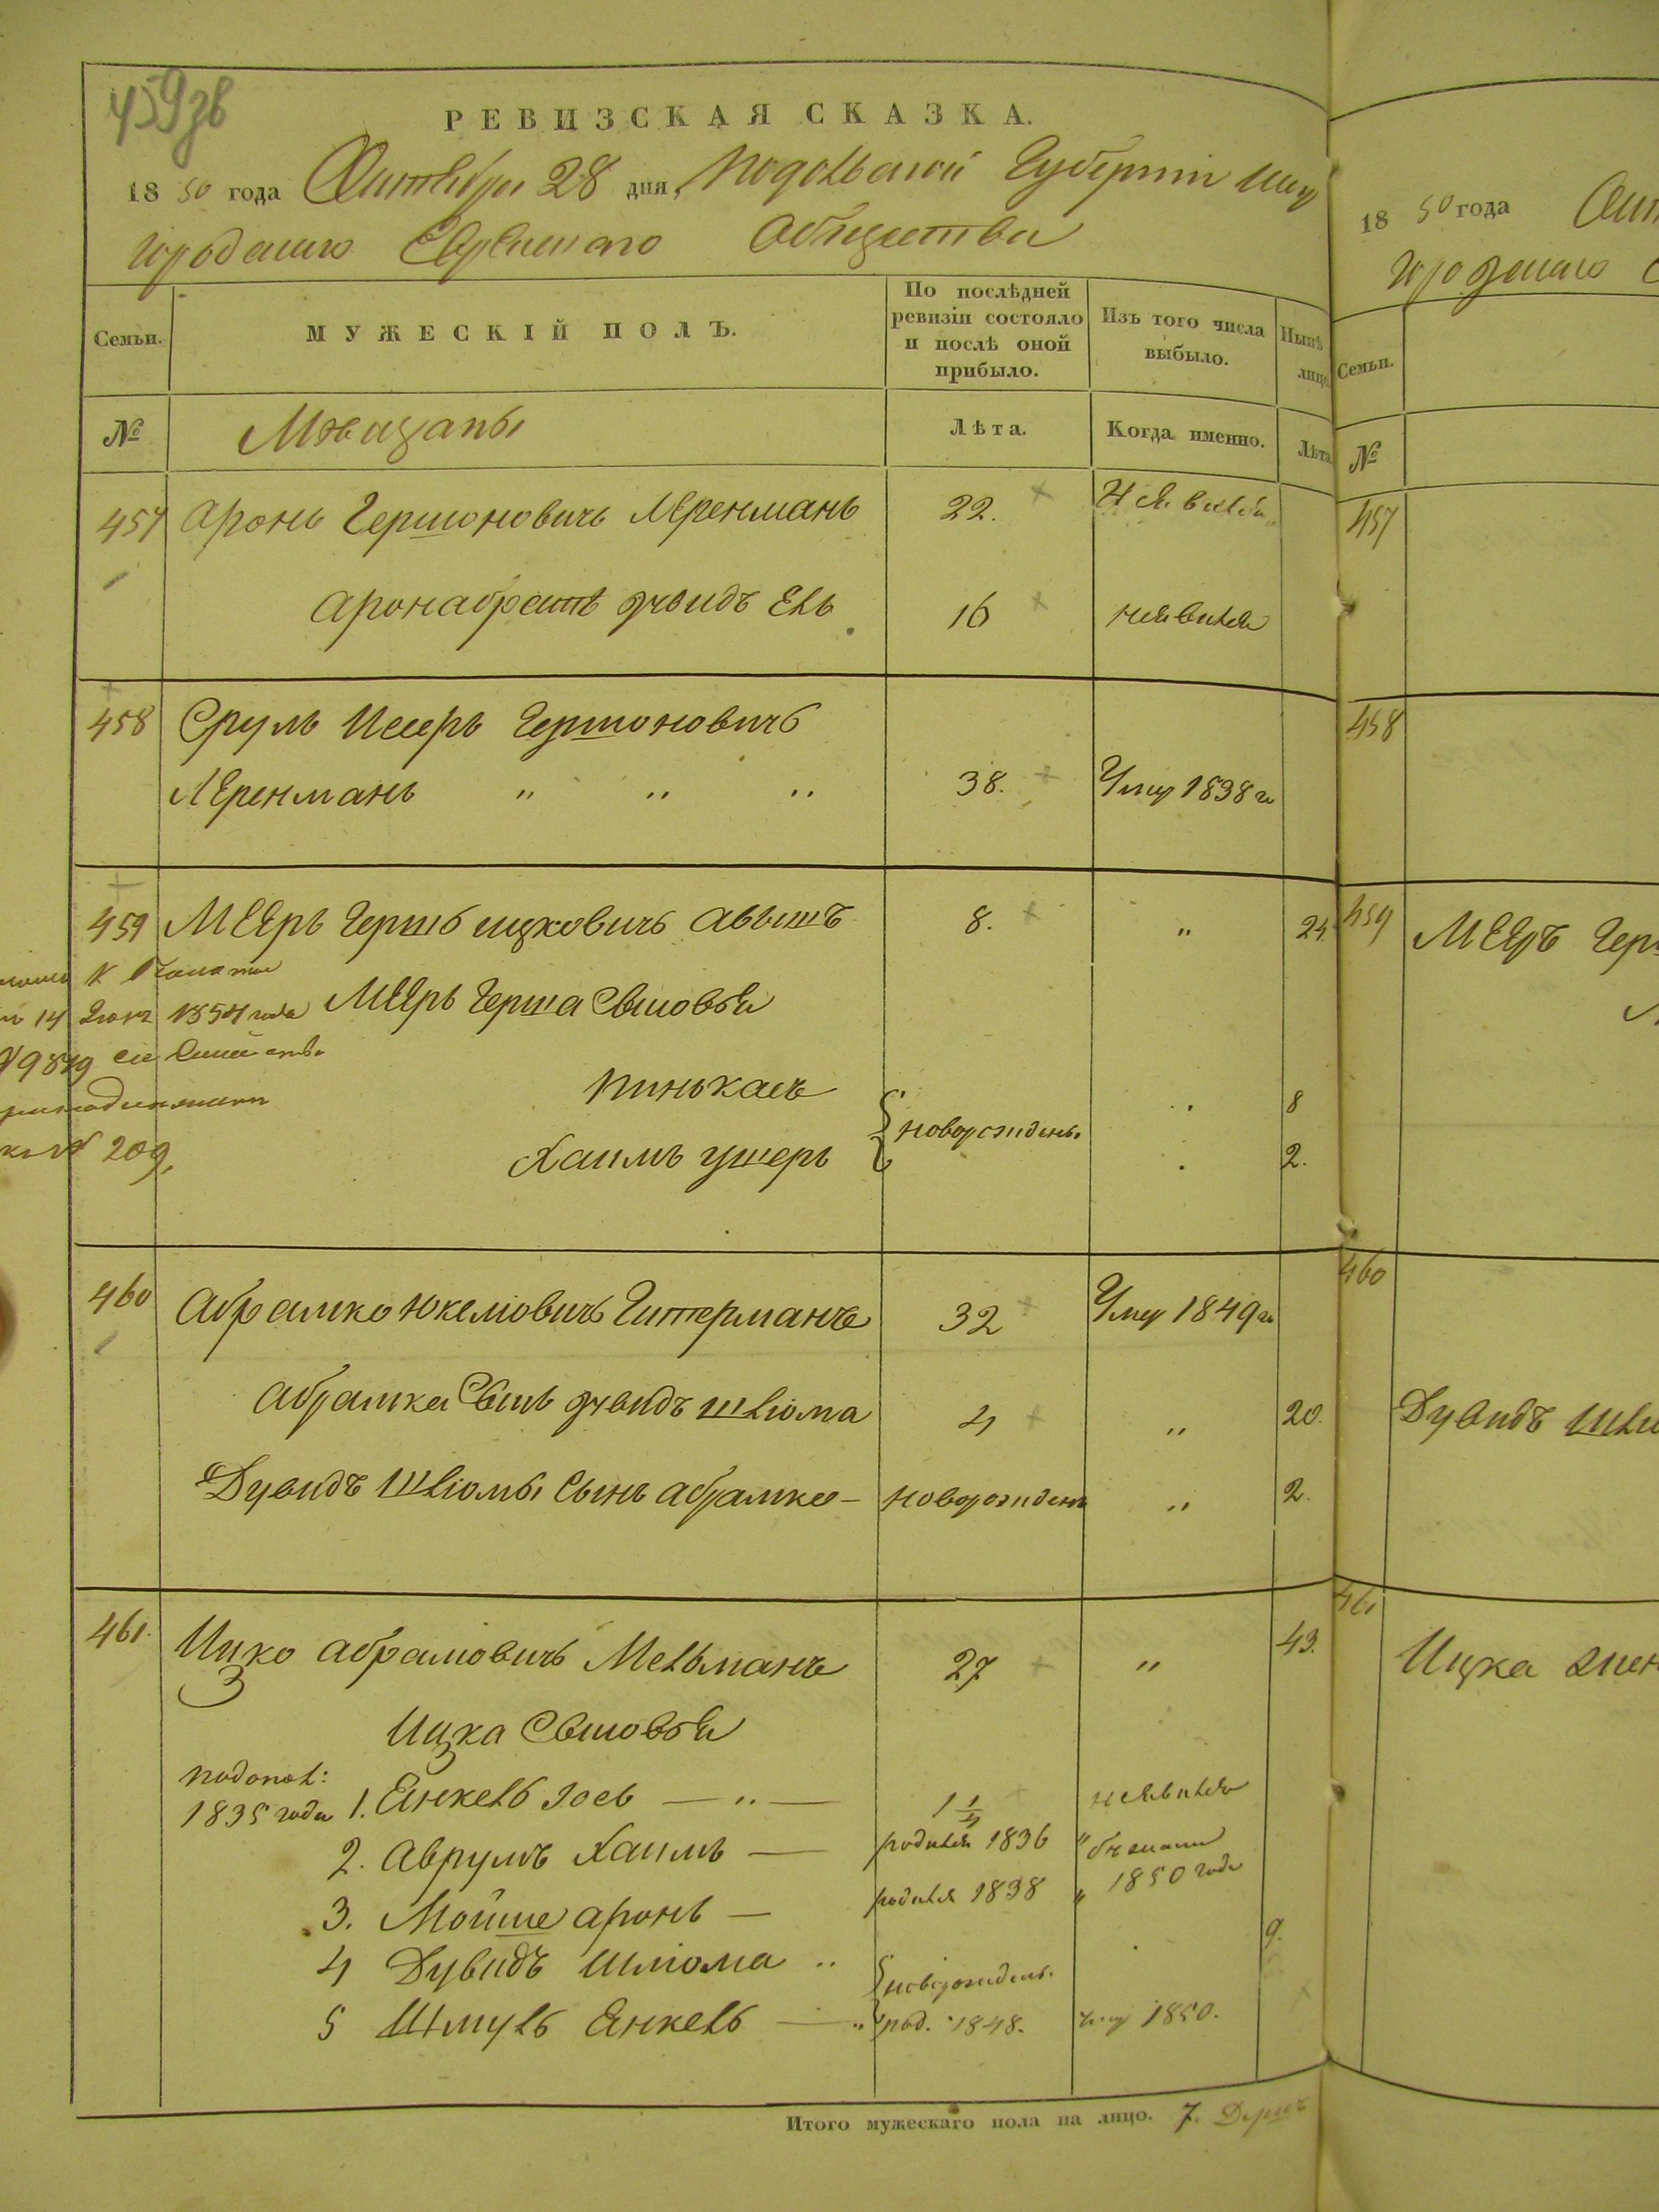 459 зв
РЕВИЗСКАЯ СКАЗКА.
1850 года Октября 28 дня, Подольской Губернiи
Еврейского Общества
Семьи.
МУЖЕСКIЙ ПОЛЪ.
По послѣдней ревизiи состояло и послѣ оной прибыло.
Изъ того числа выбыло.
Нынѣ лицо
№
Мѣщаны
Лѣта.
Когда именно.
Лѣта
457 Аронъ Гершоновичъ Леренманъ 22. Неявил.
Арона братъ Дувидъ Ель 16 неявился
458 Сруль Исеръ Гершоновичъ
Леренманъ " " " 38. Умер 1838 г
459 Мееръ Гершъ ицковичъ Авышъ 8. " 24.
Мееръ Герша Сыновья
14 1854 года
Пинькасъ 8
новорожденъ.
Хаимъ Ушеръ 2.
№ 209,
460 Абрамко Юкелiовичъ Гитерманъ 32 Умер 1849 г
Абрамка Сынъ Дувидъ Шлiома 4 " 20.
Дувидъ Шлiомы Сынъ Абрамко - новорожден " 2.
461. Ицко Абрамовичъ Мельманъ 27 " 43.
Ицка Сыновья
подопол:
1835 года 1. Енкель Iось — " — 1 1/4 неявился
2. Аврумъ Хаимъ — родился 1836 "
1850 года
3. Мойше Аронъ — родился 1838 "
4 Дувидъ Шлiома " новорожден. 9.
5 Шмуль Енкель — " род. 1848. умер 1850.
Итого мужескаго пола на лицо. 7.
18 50 года
Семьи.
№
457
458
459 Мееръ Гер
460
Дувидъ Шлi
461
Ицка жен